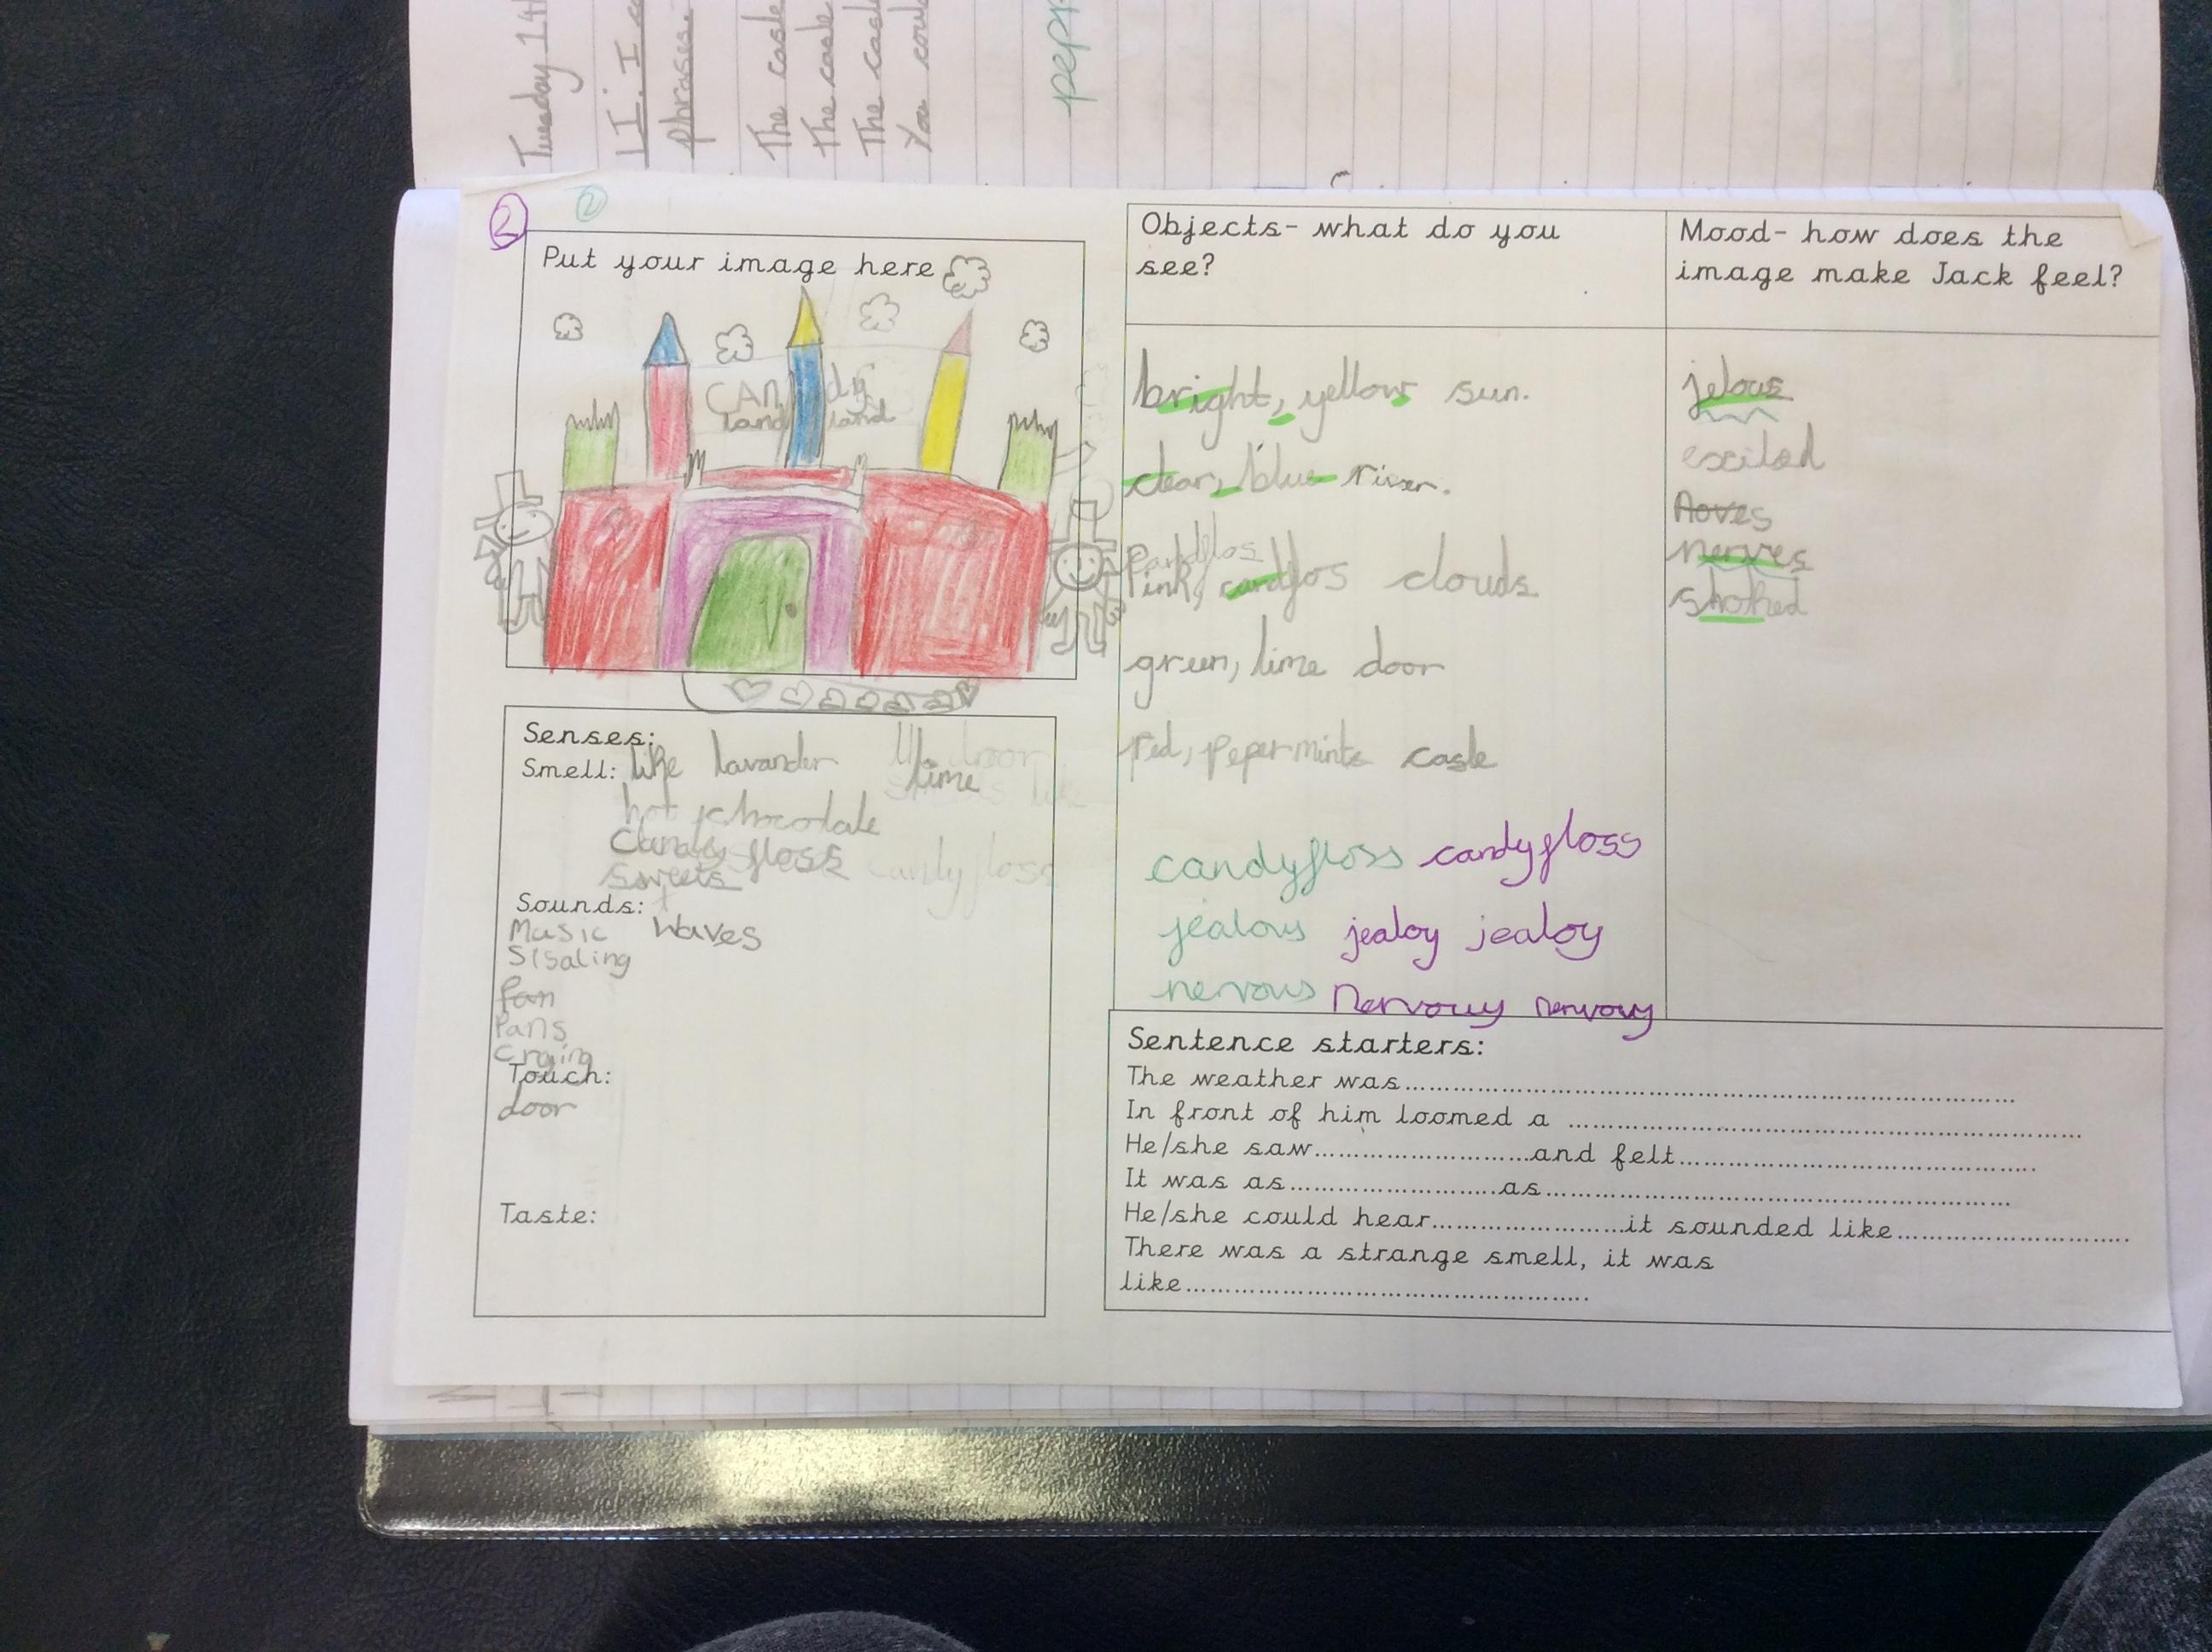 Tuesday 14
LI: I c
phrases
The casle
The casle
The casl
You coul
pepp
2
2
Put your image here
CANdy
land land
Senses:
Smell: like lavander lime
hot chocolate
Candy floss candyfloss
sweets
Sounds:
Music Waves
Sisaling
fan
Pans
Crying
Touch:
door
Taste:
Objects- what do you
see?
bright, yellow sun.
clear, blue river.
Pink, candyflos clouds
green, lime door
red, pepermints casle
candyfloss candyfloss
jealous jealoy jealoy
nervous nervouy nervouy
Mood- how does the
image make Jack feel?
jelous
excited
nerves
shoked
Sentence starters:
The weather was..........
In front of him loomed a ..........
He/she saw..........and felt..........
It was as..........as..........
He/she could hear..........it sounded like..........
There was a strange smell, it was
like..........